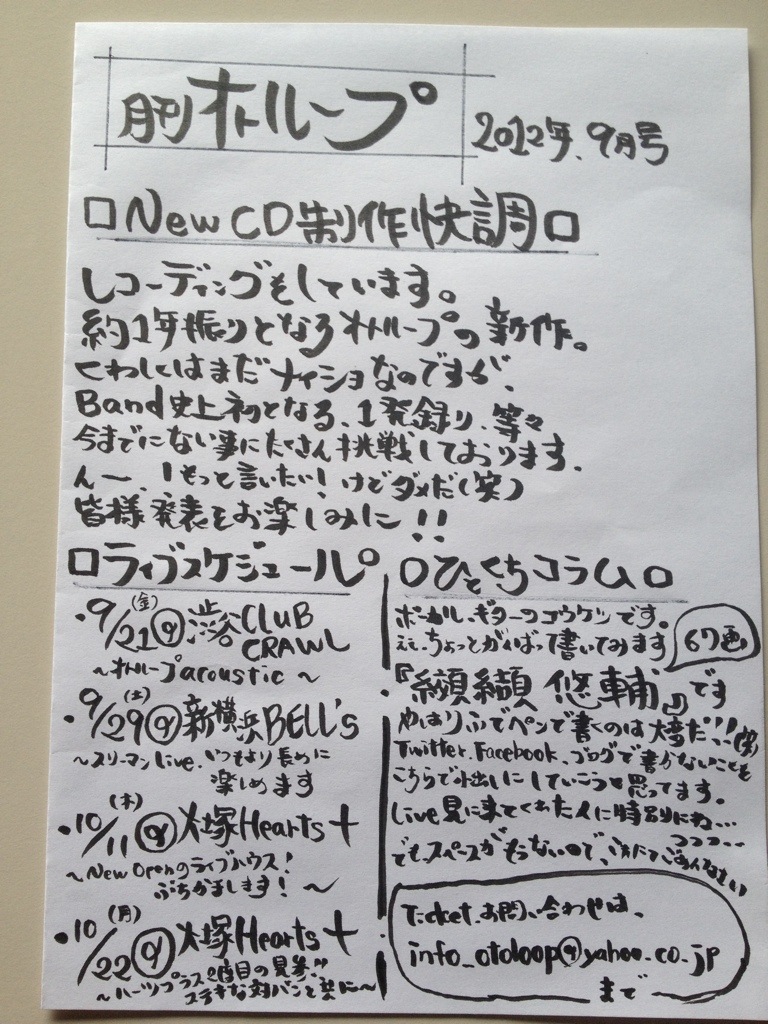 月刊オトループ 2012年.9月号
□New CD制作快調□
レコーディングをしています。
約1年振りとなるオトループの新作。
くわしくはまだナイショなのですが、
Band史上初となる、1発録り、等々
今までにない事にたくさん挑戦しております。
んー、!もっと言いたい!けどダメだ(笑)
皆様発表をお楽しみに!!
□ライブスケジュール□
・9/21(金)@渋谷CLUB CRAWL
〜オトループacoustic〜
・9/29(土)@新横浜BELL's
〜スリーマンlive.いつもより長めに
楽しめます
・10/11(木)@大塚Hearts+
〜New Openのライブハウス!
ぶちかまします!〜
・10/22(月)@大塚Hearts+
〜ハーツプラス2度目の見参!!
ステキな対バンと共に〜
□ひとくちコラム□
ボーカル.ギターのコウケツです。
えー、ちょっとがんばって書いてみます
67画。
『纐纈 悠輔』です
やはりふでペンで書くのは大変だ…!!(笑)
Twitter.Facebook、ブログで書かないことを
こちらで小出しにしていこうと思ってます。
live見に来てくれた人に特別にね…
つつつ…
でもスペースがもうないので、
Ticket.お問い合わせは、
info_otoloop@yahoo.co.jp
まで